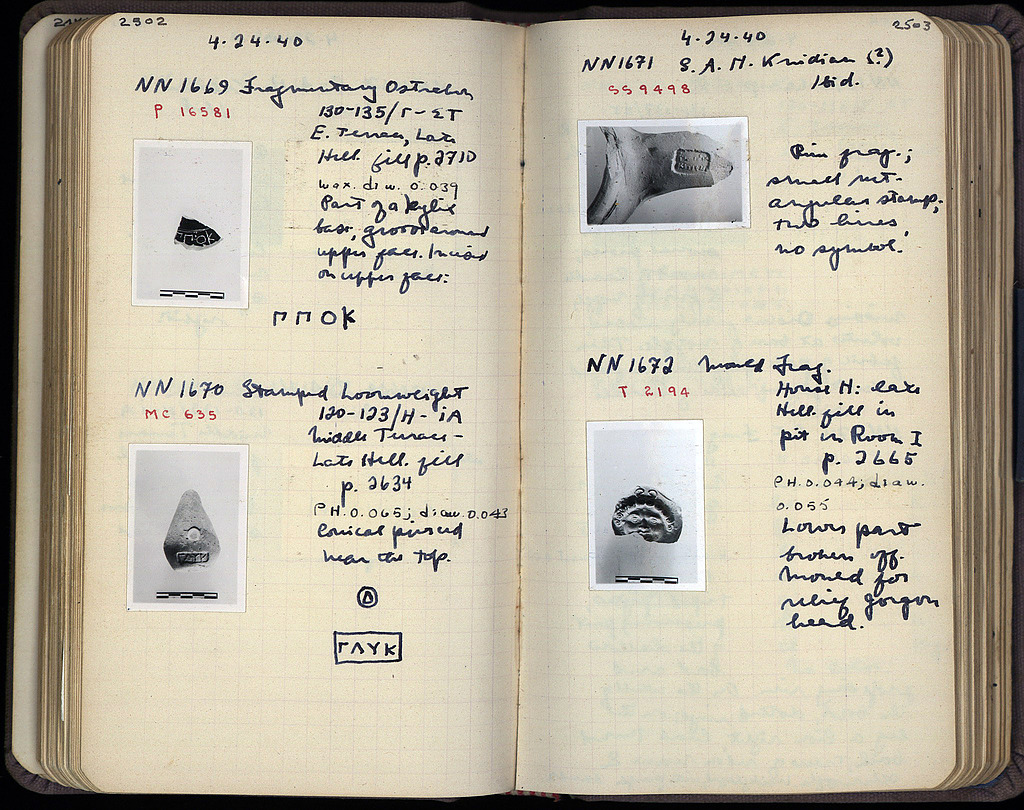 2502
4-24-40
NN 1669 Fragmentary Ostrakon
P 16581
130-135/Γ-ΣΤ
E. Terrace, Late
Hell. fill p. 2710
max. diw. 0.039
Part of a kylix
base, groove around
upper face. Incised
on upper face:
ΠΠΟΚ
NN 1670 Stamped Loomweight
MC 635
120-123/H-ΙΑ
Middle Terrace-
Late Hell. fill
p. 2634
PH. 0.065; diaw. 0.043
Conical pierced
near the top.
Δ
ΓΛΥΚ
2503
4-24-40
NN1671 S.A.H. Knidian (?)
SS 9498
Ibid.
Rim frag.;
small rect-
angular stamp;
two lines,
no symbol.
NN 1672 Mould Frag.
T 2194
House H: late
Hell. fill in
pit in Room I
p. 2665
PH. 0.044; diaw.
0.055
Lower part
broken off.
Mould for
relief gorgon
head.